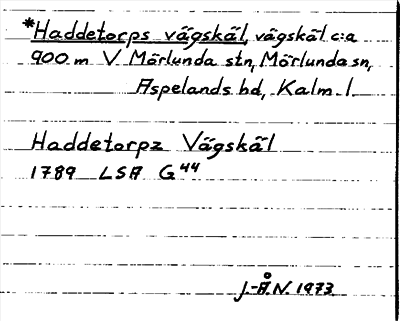 *Haddetorps vägskäl, vägskäl c:a
900 m V Mörlunda stn, Mörlunda sn,
Aspelands hd, Kalm l.
Haddetorpz Vägskäl
1789 LSA G44
J.-Å.N. 1973